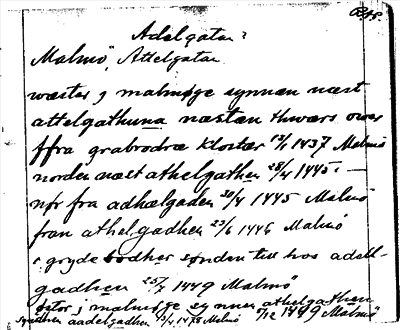 Adelgatan?
Malmö, Attelgatan
wæster j malmøge synnan næst
attelgathuna næstæn thwærs ower
ffra grabrodræ kloster 12/1 1437 Malmö
norden næst athelgathen 28/4 1445. —
nør fra adhælgaden 30/4 1445 Malmö
fran athelgadhen 23/6 1446 Malmö
i gryde bodher sønden till hos adell-
gadhen 25/7 1449 Malmö
øster j malmøge synnen athelgathen
9/12 1449 Malmö
synden aadelgadhen 13/4 1478 Malmö